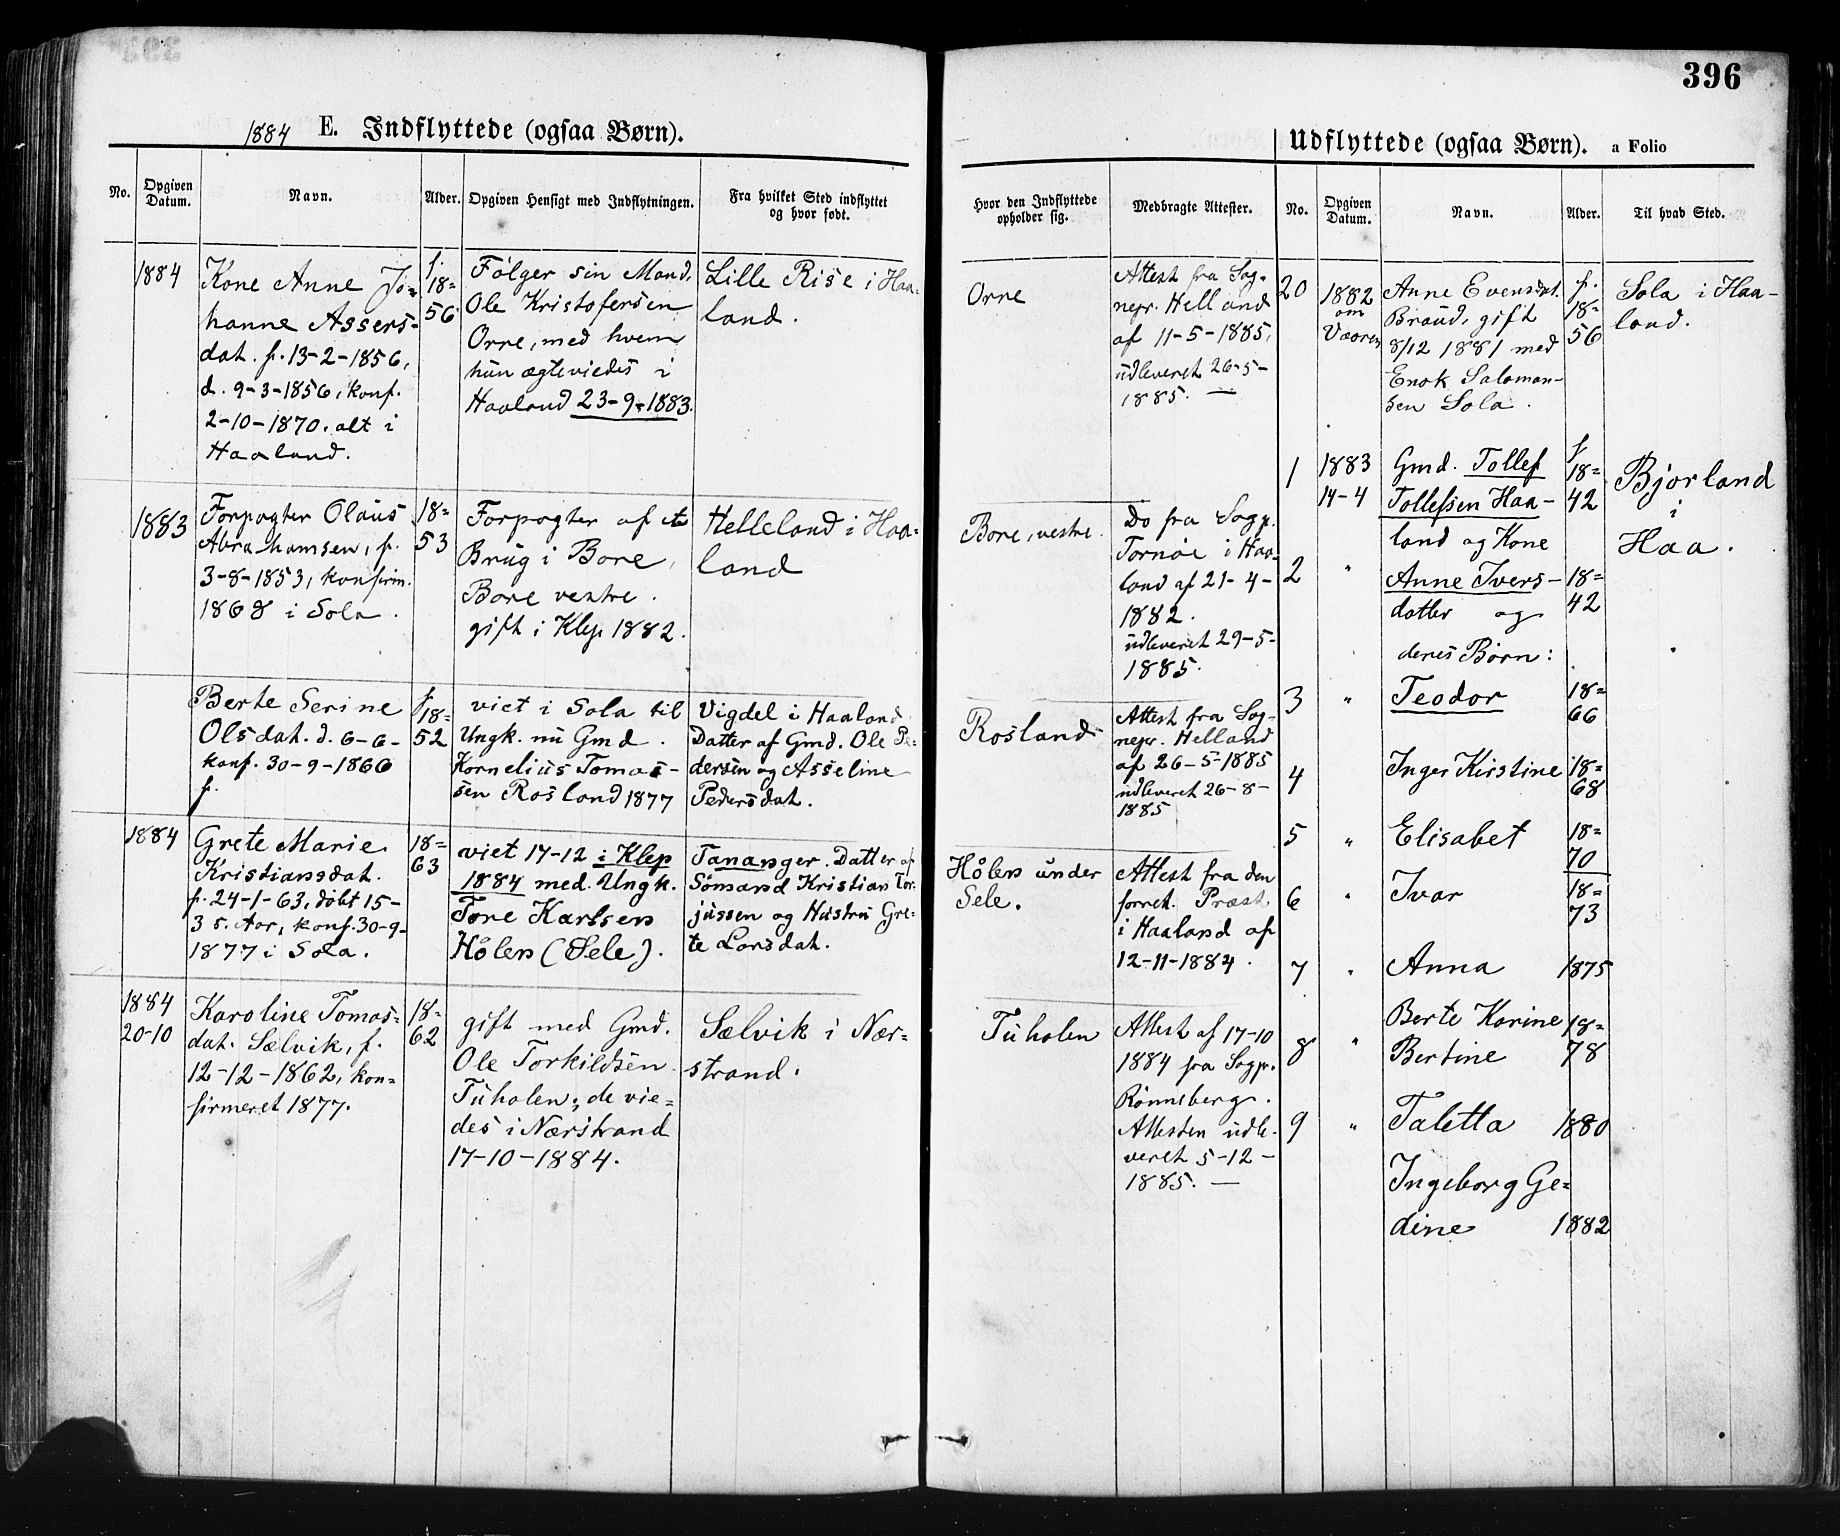 396
1884 E. Indflyttede (ogsaa Børn).
No.
Opgiven Datum.
Navn.
Alder.
Opgiven Hensigt med Indflytningen.
Fra hvilket Sted indflyttet
og hvor født.
Hvor den Indflyttede
opholder sig.
Medbragte Attester.
1884
Kone Anne Jo-
hanne Assers-
dat. f. 13-2-1856,
d. 9-3-1856, konf.
2-10-1870. alt i
Haaland.
f.
18=
56
Følger sin Mand,
Ole Kristofersen
Orre, med hvem
hun ægteviedes i
Haaland 23-9-1883.
Lille Rise i Haa-
land.
Orre
Attest fra Sog-
nepr. Helland
af 11-5-1885,
udleveret 26-5-
1885. —
1883
Forpagter Olaus
Abrahamsen, f.
3-8-1853, konfirm.
1868 i Sola.
18=
53
Forpagter af et
Brug i Bore,
Bore vestre.
gift i Klep 1882.
Helleland i Haa-
land
Bore, vestre.
Do fra Sogp.
Tornøe i Haa-
land af 21-4-
1882.
udleveret 29-5-
1885.
Berte Serine
Olsdat. d. 6-6-
konf. 30-9-1866
f.
f
18=
52
viet i Sola til
Ungk. nu Gmd.
Kornelius Tomas-
sen Rosland 1877
Vigdel i Haaland
Datter af Gmd. Ole Pe-
dersen og Asseline
Pedersdat.
Rosland
Attest fra Sog-
nepr. Helland
af 26-5-1885
udleveret 26-8-
1885
1884
Grete Marie
Kristiansdat.
f. 24-1-63, døbt 15-
3 s. Aar, konf. 30-9-
1877 i Sola.
18=
63
viet 17-12 i Klep
1884 med Ungk.
Tore Karlsen
Hålen (Sele).
Tananger. Datter af
Sømand Kristian Tor-
jussen og Hustru Gre-
te Larsdat.
Hålen under
Sele.
Attest fra den
forret. Præst
i Haaland af
12-11-1884.
1884
20-10
Karoline Tomas-
dat. Sælvik, f.
12-12-1862, kon-
firmeret 1877.
18=
62
gift med Gmd.
Ole Torkildsen
Tuholen; de vie-
des i Nærstrand
17-10-1884.
Sælvik i Nær-
strand.
Tuholen
Attest af 17-10
1884 fra Sogpr.
Rønneberg.
Attesten udle-
veret 5-12-
1885. —
Udflyttede (ogsaa Børn). a Folio
No.
Opgiven
Datum.
Navn.
Alder.
Til hvad Sted.
20
1882
om
Vaaren
Anne Evensdat.
Braud, gift
8/12 1881 med
Enok Salomon-
sen Sola.
f.
18=
56
Sola i Haa-
land.
1
1883
14-4
Gmd. Tollef
Tollefsen Haa-
land og Kone
f
18=
42
Bjorland
i
Haa.
2
"
Anne Ivers-
datter og
deres Børn:
18=
42
3
"
Teodor
18=
66
4
Inger Kirstine
18=
68
5
"
Elisabet
18=
70
6
"
Ivar
18=
73
7
"
Anna
1875
8
"
Berte Karine
Bertine
18=
78
9
"
Taletta
1880
Ingeborg Ge-
dine
1882